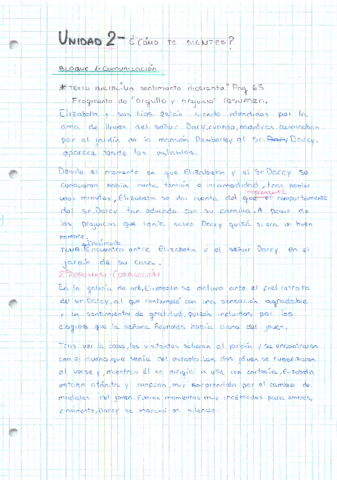 UNIDAD 2- ¿CÓMO TE SIENTES?
BLOQUE 1-Comunicación
* Texto "Un sentimiento Pag 63
Fragmento de "orgullo y prejuicio" resumen.
Elizabeth y sus tíos están siendo atendidos por la
ama de llaves del señor Darcy, cuando, mientras caminaban
por el jardín de la mansión Pemberley al Sr. Darcy.
aparece desde los establos.
Desde el momento en que Elizabeth y el Sr Darcy se
había mucha tensión e incomodidad, tras hablar
unos minutos, Elizabeth se da cuenta del que el comportamiento
del sr. Darcy con su familia. A pesar de
los prejuicios que tenía sobre Darcy quizá sí era un buen
hombre.
TEMA: Encuentro entre Elizabeth y el señor Darcy en el
jardín de su casa.
RESUMEN CORRECCIÓN
En la galería de arte, Elizabeth se detuvo ante el retrato
del sr. Darcy, al que contempló con una sensación agradable
y un sentimiento de gratitud, quizás incluidos por los
elogios que la señora Reynolds había dado del joven.
Tras ver la casa, los visitantes salieron al jardín y se encontraron
con el dueño que venía del establo. Los dos jóvenes se ruborizaron
al verse y, mientras él se dirigió a ella con cortesía, Elizabeth
estaba atónita y también, muy sorprendida por el cambio de
modales del joven. Fueron momentos muy incómodos para ambos,
finalmente, Darcy se marchó en silencio.